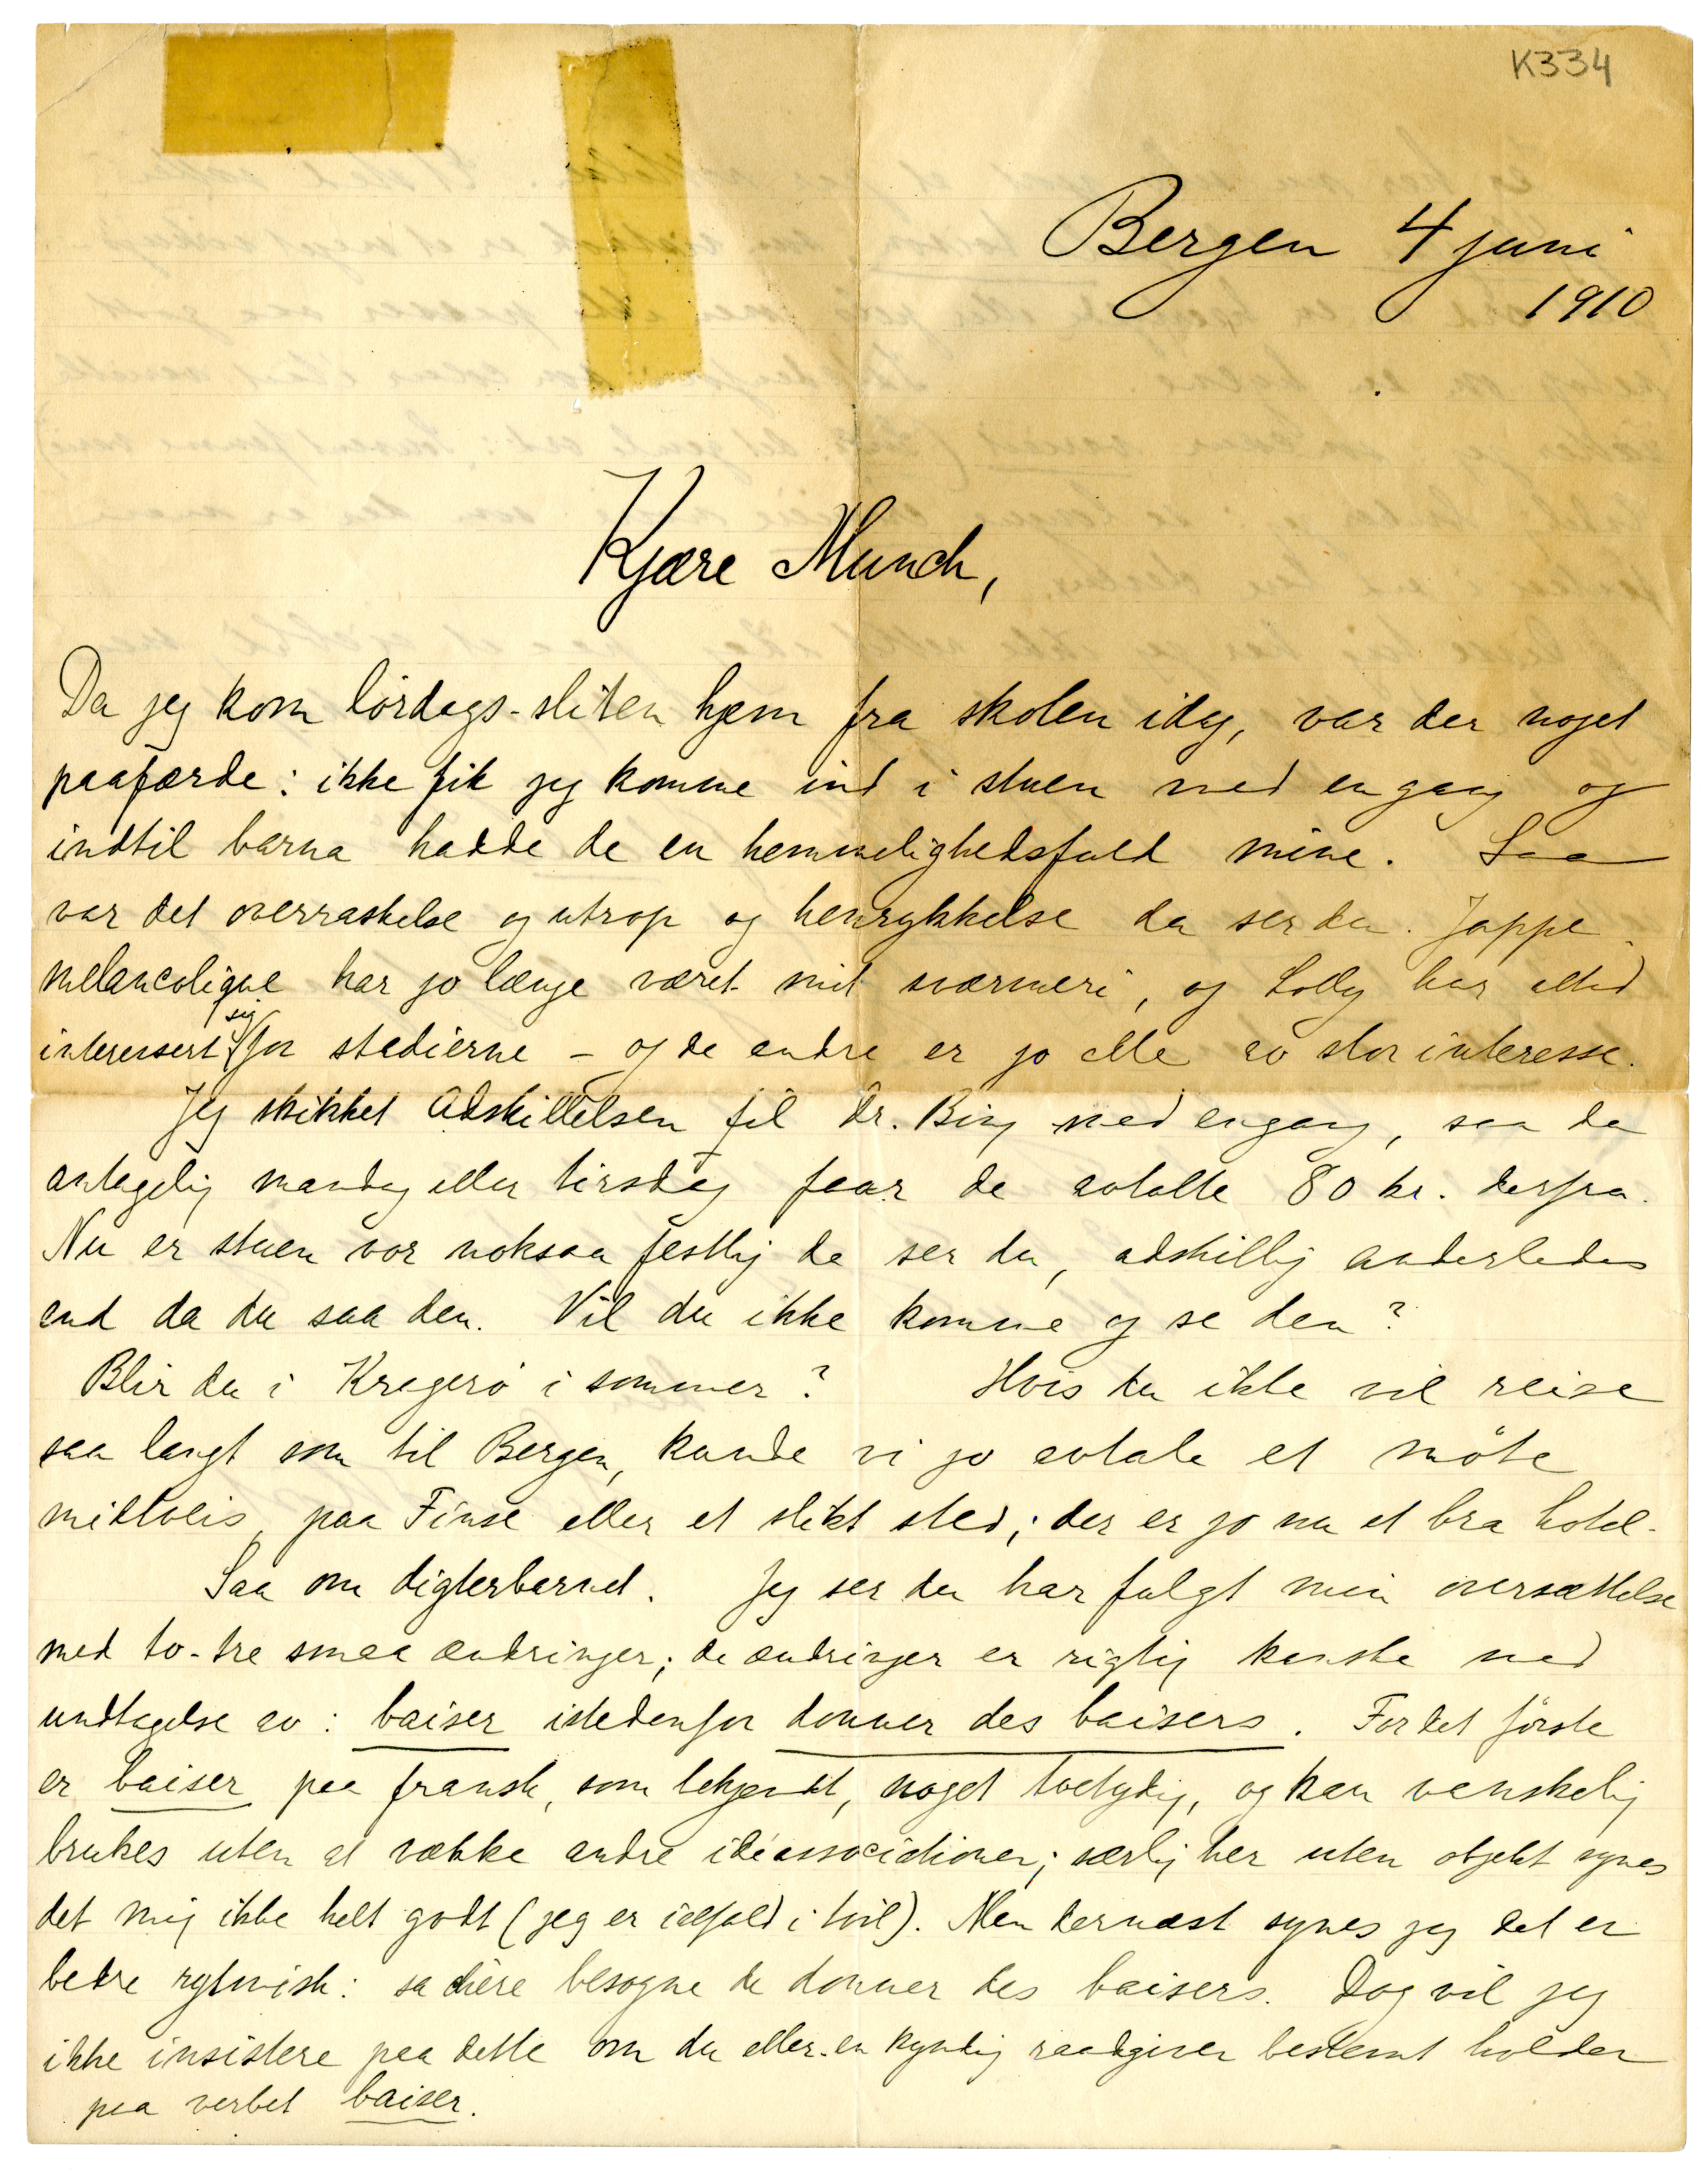 K334
Bergen 4 juni
1910
Kjære Munch,
Da jeg kom lørdags-sliten hjem fra skolen idag, var der noget
paafærde: ikke fik jeg komme ind i stuen med engang og
indtil barna hadde de en hemmelighedsfuld mine. Saa
var det overraskelse og utrop og henrykkelse da ser du. Jappe
melancolique har jo længe været mit sværmeri, og Lolly har altid
interessert sig for stadierne – og de andre er jo alle av stor interesse.
Jeg skikket Adskillelsen til Dr. Bing med engang, saa du
antagelig mandag eller tirsdag faar de avtalte 80 kr. derfra.
Nu er stuen vor noksaa festlig da ser du, adskillig anderledes
end da du saa den. Vil du ikke komme og se den?
Blir du i Kragerø i sommer? Hvis du ikke vil reise
saa langt som til Bergen, kunde vi jo avtale et møte
midtveis, paa Finse eller et slikt sted; der er jo nu et bra hotel.
Saa om digterbarnet. Jeg ser du har fulgt min oversættelse
med to-tre smaa ændringer; de ændringer er rigtig kanske med
undtagelse av: baiser istedenfor donner des baisers. For det første
er baiser paa fransk, som bekjendt, noget tvetydig, og kan vanskelig
brukes uten at vække andre idéassociationer; særlig her uten objekt synes
det mig ikke helt godt (jeg er ialfald i tvil). Men dernæst synes jeg det er
bedre rytmisk: sa chère besogne de donner des baisers. Dog vil jeg
ikke insistere paa dette om du eller en kyndig raadgiver bestemt holder
paa verbet baiser.